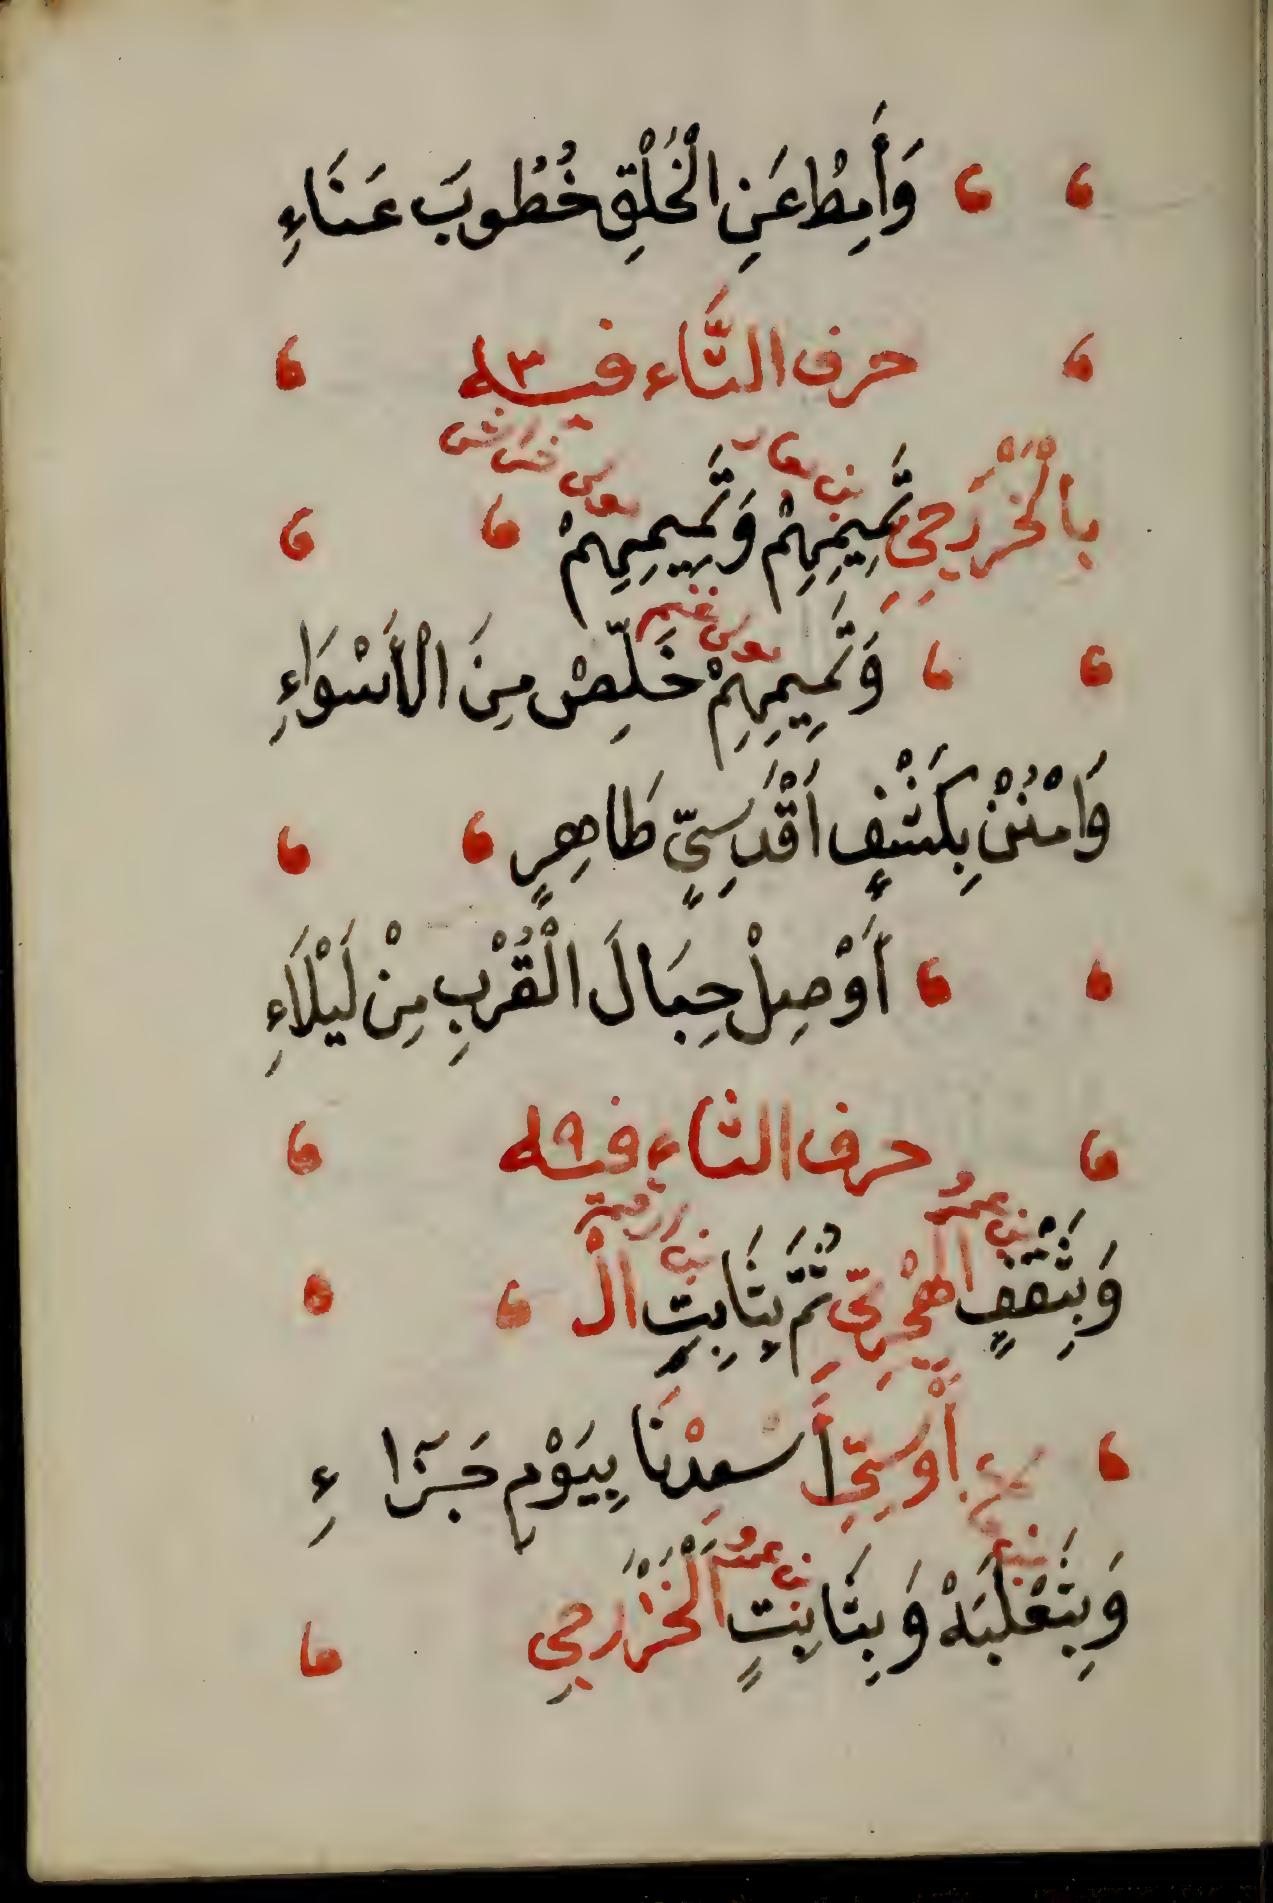 وَأَمِطْ عَنِ الْخَلْقِ خُطُوبَ عَنَاءِ
حرف التَّاء فيه ٣
بن يعار
مولى خراش
بِالْخَزْرَجِيِ تَمِيمِهِمْ وَتَمِيمِهِمْ
مولى غنم
وَتَمِيمِهِمْ خَلِّصْ مِنَ الْأَسْوَاءِ
وَامْنُنْ بِكَشْفٍ أَقْدَسِيٍّ طَاهِرٍ
أَوْصِلْ حِبَالَ الْقُرْبِ مِنْ لَيْلَاءِ
حرف الثاء فيه ٩
بن عمرو
بن
وَبِثَقْفٍ الهْجْرِيِّ ثُمَّ بِثَابِتِ الْ
أَوْسِيِّ أَسْعِدْنَا بِيَوْمِ جَزَآءِ
بن عمرو
وَبِثَعْلَبَهْ وَبِثَابِتٍ الْخَزْرَجِي